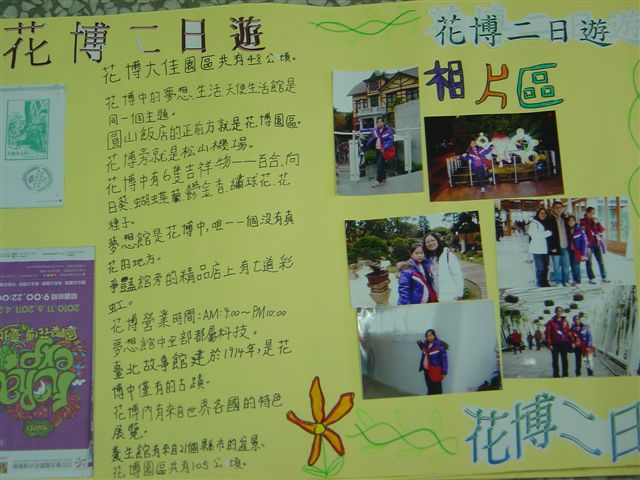 花博二日遊
花博大佳園區共有48公頃。
花博中的夢想、生活、天使生活館是
同一個主題。
圓山飯店的正前方就是花博園區。
花博旁就是松山機場。
花博中有6隻吉祥物——百合、向
日葵、蝴蝶蘭、鬱金香、繡球花、花
種子。
夢想館是花博中,唯一一個沒有真
花的地方。
爭豔館旁的精品店上有七道彩
虹。
花博營業時間:AM:9:00~PM10:00
夢想館中全部都屬科技。
臺北故事館建於1914年,是花
博中僅有的古蹟。
花博內有來自世界各國的特色
展覽。
養生館有來自21個縣市的盆景。
花博園區共有105公頃。
花博二日遊
相片區
花博二日
9:00-22:00
2010.11.6-2011.4.2